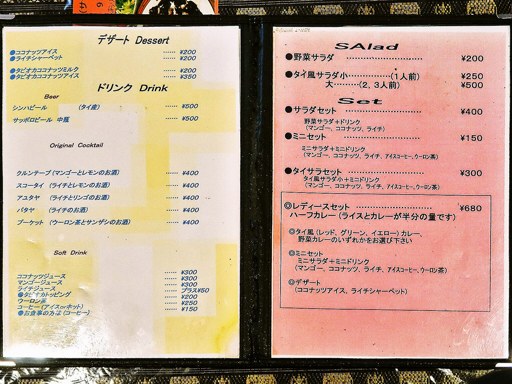 デザート Dessert
●ココナッツアイス ‥‥‥ ¥200
●ライチシャーベット ‥‥‥ ¥200
●タピオカココナッツミルク ‥‥‥ ¥200
●タピオカココナッツアイス ‥‥‥ ¥350
ドリンク Drink
Beer
シンハビール (タイ産) ‥‥‥ ¥500
サッポロビール 中瓶 ‥‥‥ ¥500
Original Cocktail
クルンテープ(マンゴーとレモンのお酒) ‥‥‥ ¥400
スコータイ (ライチとレモンのお酒) ‥‥‥ ¥400
アユタヤ (ライチとリンゴのお酒) ‥‥‥ ¥400
パタヤ (ライチのお酒) ‥‥‥ ¥400
プーケット (ウーロン茶とサンザシのお酒) ‥‥‥ ¥400
Soft Drink
ココナッツジュース ‥‥‥ ¥300
マンゴージュース ‥‥‥ ¥300
ライチジュース ‥‥‥ ¥300
●タピオカトッピング ‥‥‥ プラス¥50
ウーロン茶 ‥‥‥ ¥200
コーヒー(アイスorホット) ‥‥‥ ¥250
●お食事の方は(コーヒー) ‥‥‥ ¥150
SAlad
●野菜サラダ ‥‥‥‥‥‥‥‥ ¥200
●タイ風サラダ小‥‥‥‥‥(1人前) ¥250
大‥‥‥(2, 3人前) ¥500
Set
●サラダセット ‥‥‥‥‥‥‥‥ ¥400
野菜サラダ+ドリンク
(マンゴー、ココナッツ、ライチ)
●ミニセット ‥‥‥‥‥‥‥‥ ¥150
ミニサラダ+ミニドリンク
(マンゴー、ココナッツ、ライチ、アイスコーヒー、ウーロン茶)
●タイサラセット ‥‥‥‥‥‥‥‥ ¥300
タイ風サラダ小+ミニドリンク
(マンゴー、ココナッツ、ライチ、アイスコーヒー、ウーロン茶)
◎レディースセット ‥‥‥‥‥‥‥ ¥680
ハーフカレー(ライスとカレーが半分の量です)
◎タイ風(レッド、グリーン、イエロー)カレー、
野菜カレーのいずれかをお選び下さい
◎ミニセット
ミニサラダ+ミニドリンク
(マンゴー、ココナッツ、ライチ、アイスコーヒー、ウーロン茶)
◎デザート
(ココナッツアイス、ライチシャーベット)